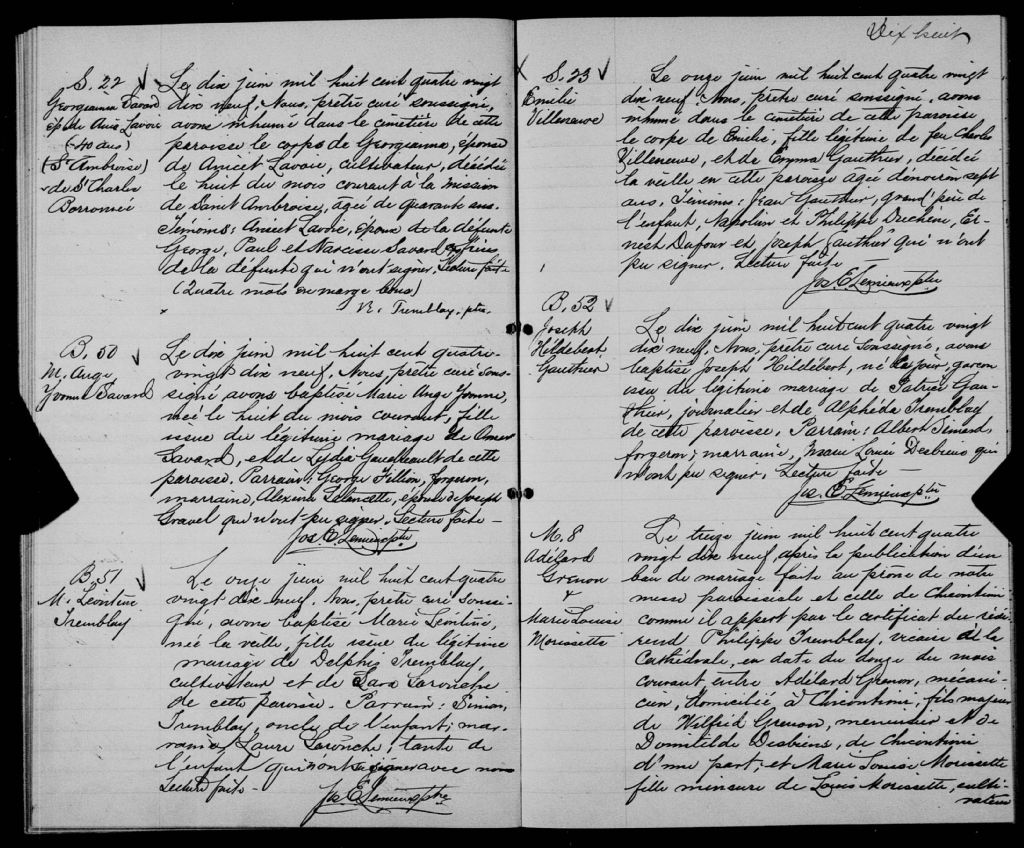 S. 22
Georgeanna Savard
ép. de Anis Lavoie
(40 ans)
(St Ambroise)
de St Charles
Borromée
Le dix juin mil huit cent quatre vingt
dix neuf, Nous, prêtre curé soussigné,
avons inhumé dans le cimetière de cette
paroisse le corps de Georgeanna, épouse
de Anicet Lavoie, cultivateur, décédée
le huit du mois courant à la mission
de Saint Ambroise, agée de quarante ans.
Témoins: Anicet Lavoie, époux de la défunte
George, Paul et Narcisse Savard frères
de la défunte qui n'ont signer, Lecture faite
(Quatre mots en marge bons)
V. Tremblay, ptre.
B. 50
M. Ange
Yvonne Savard
Le dix juin mil huit cent quatre-
vingt dix neuf, Nous, prêtre curé sous-
signé avons baptisé Marie Ange Yvonne,
née le huit du mois courant, fille
issue du légitime mariage de Omer
Savard, et de Lydia Gaudreault de cette
paroisse. Parrain: George Fillion, forgeron,
marraine, Alexina Talancette, épouse de Joseph
Gravel qui n'ont pu signer. Lecture faite -
Jos E. Lemieux ptre
B. 51
M. Léontine
Tremblay
Le onze juin mil huit cent quatre
vingt dix neuf. Nous, prêtre curé soussi-
gné, avons baptisé Marie Léontine,
née la veille, fille issue du légitime
mariage de Delphis Tremblay,
cultivateur et de Sara Larouche
de cette paroisse. Parrain: Simon
Tremblay, oncle de l'enfant; mar-
raine Laure Larouche, tante de
l'enfant qui ont signer avec nous
Lecture faite -
Jos. E. Lemieux ptre
Dix huit
S. 23
Emilie
Villeneuve
Le onze juin mil huit cent quatre vingt
dix neuf. Nous, prêtre curé soussigné, avons
inhumé dans le cimetière de cette paroisse
le corps de Emilie, fille légitime de feu Charles
Villeneuve, et de Emma Gauthier, décédée
la veille en cette paroisse agée d'environ sept
ans, Témoins: Jean Gauthier, grand'père de
l'enfant, Napoléon et Philippe Duchêne, Er-
nest Dufour et Joseph Gauthier qui n'ont
pu signer, Lecture faite -
Jos E Lemieux ptre
B. 52
Joseph
Hildebert
Gauthier
Le dix juin mil huit cent quatre vingt
dix neuf, Nous, prêtre curé soussigné, avons
baptisé Joseph Hildébert, né ce jour, garçon
issu du légitime mariage de Patrice Gau-
thier, journalier et de Alphéda Tremblay
de cette paroisse, Parrain: Albert Simard,
forgeron; marraine, Marie Louise Desbiens qui
n'ont pu signer, Lecture faite -
Jos. E. Lemieux ptre
M. 8
Adélard
Grenon
&
Marie Louise
Morissette
Le treize juin mil huit cent quatre
vingt dix neuf après la publication d'un
ban de mariage faite au prône de notre
messe paroissiale et celle de Chicoutimi
comme il appert par le certificat du révé-
rend Philippe Tremblay, vicaire de la
Cathédrale, en date du douze du mois
courant entre Adélard Grenon, mécani-
cien, domicilié à Chicoutimi, fils majeur
de Wilfrid Grenon, menuisier et de
Domitilde Desbiens, de Chicoutimi
d'une part; et Marie Louise Morissette
fille mineure de Louis Morissette, culti-
vateur